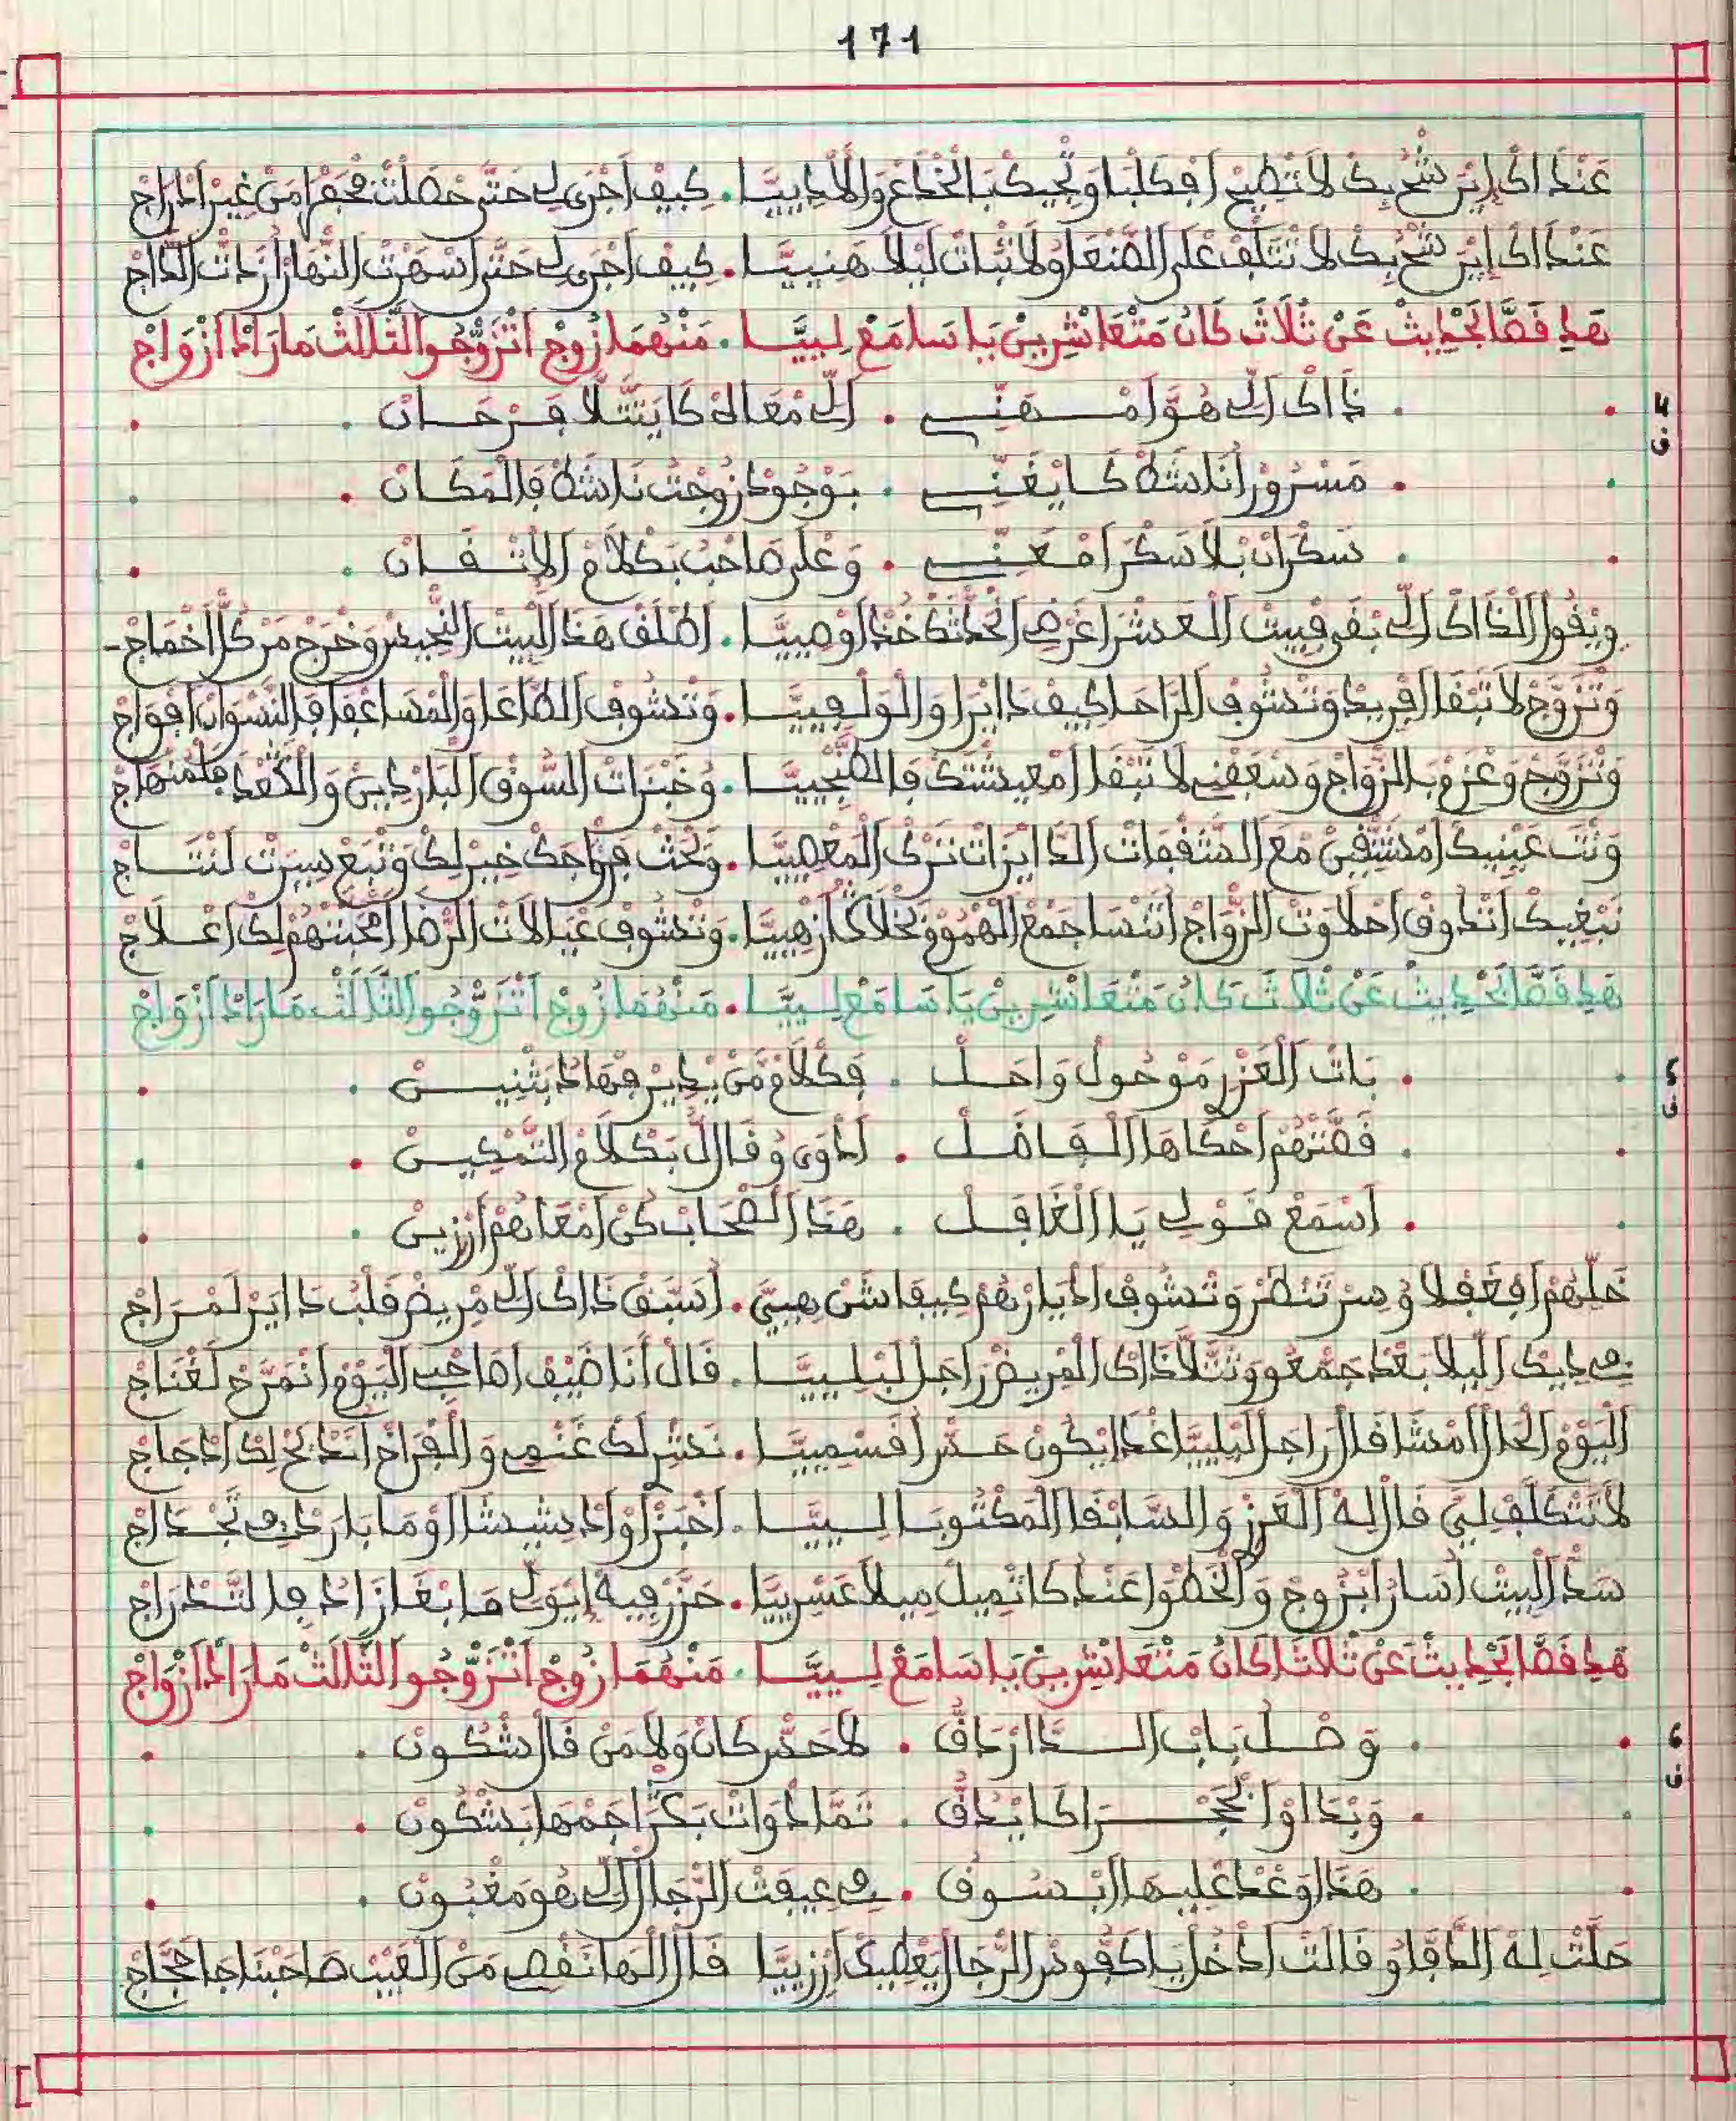 171
عَنْدَاكْ إِيْرَ شْحِيكْ لَا تْطِيحْ افْكَلْبَا وَتْجِيكْ بَالْخْدَاعْ وَالْاذِيِيَّا . كِيفْ اجْرَى لِي حَتَّى حْصَلْتْ مْحَقَّرَا مَنْ غِيرْ ادْرَاجْ
عَنْدَاكْ إِيْرَ شْحِيكْ لَا تَتَّلَفْ عَلَى الصَّنْعَا وُلَا تْبَاتْ لَيْلَا هَنِيَّا . كِيفْ اجْرَى لِي حَتَّى اسْهَرْتْ النْهَارْ ازَّادَتْ الدَّاجْ
هَدِ قَصَّا لَحْدِيثْ عَنْ ثْلَاثْ كَانُ مَتْعَاشْرِينْ يَا سَامَعْ لِيِيَّا . مَنْهُمَا زُوجْ اتْزَوّْجُوا الثَّالَثْ مَارَادْ ازْوَاجْ
4
ف
دَاكْ الِّي هُوَّا مْهَنِّي . الِّي مْعَاهْ كَا يَتَّلَّا فَرْحَانْ .
مَسْرُورْ انَاشَطْ كَا يْغَنِّي . بَوْجُودْ زُوجْتْ نَاشَطْ فَالْمَكَانْ .
سَكْرَانْ بْلَا سَكْرَا مْعَنِّي . وَعْلَى صَاحْبُ بَكْلَامْ الْاتْقَانْ .
وِيقُولْ الْذَاكْ الِّي بْقَى فْبِيتْ الْعَشْرَا عَرْضِي انْحَدّْثَكْ خُدْ اوْصِيِيَّا . اطْلَقْ هَدَا الْبِيتْ النّْحِيسْ وَخْرَجْ مَنْ كُلّْ اخْمَاجْ
وَتْزَوَّجْ لَا تَبْقَا افْرِيدْ وَتْشُوفْ الرَّاحَا كِيفْ دَايْرَا وَالْوَلْفِيَّا . وَتْشُوفْ الطَّاعَا وَالْمْسَاعْفَا فَالنَّسْوَانْ افْوَاجْ
وَتْزَوَّجْ وَعْزَمْ بَالزّْوَاجْ وَسْعَفْنِي لَا تَبْقَا امْعِيشْتَكْ فَالطَّنْجِيِيَّا . وَخْبَزَاتْ السُّوقْ الْبَارْدِينْ وَالْكَعْدَا مَامَنْهَاجْ
وَنْتَ عَيْنِيكْ امْشَتّْفِينْ مَعَ الشَّفْقَاتْ الدَّايْزَاتْ تَرْكْ الْمَعْصِيَّا . وَبْحَثْ فْزْوَاجَكْ خِيرْ لَكْ وَتْبَعْ سِيرَتْ لَنْتَاجْ
نَبْغِيكْ اتْدُوقْ احْلَاوَتْ الزّْوَاجْ اتَنْسَا جَمْعْ الْهْمُومْ وَتْحْلَاكْ ازْهِيَّا . وَتْشُوفْ عْيَالَاتْ الرّْضَا امْحَبَّتْهُمْ لَكْ اعْلَاجْ
هَدِ قَصَّا لَحْدِيثْ عَنْ ثْلَاثْ كَانُ مَتْعَاشْرِينْ يَا سَامَعْ لِيِيَّا . مَنْهُمَا زُوجْ اتْزَوّْجُوا الثَّالَثْ مَارَادْ ازْوَاجْ
5
ف
بَاتْ الْعَزْرِ مَوْحُولْ وَاحَلْ . فَكْلَامْ مَنْ يْدِيرْ فْهَادْ بَثْنِينْ .
قَصَّتْهُمْ احْكَاهَا الْفَاضَلْ . ادْوَى وُ قَالْ بَكْلَامْ التَّمْكِينْ .
اسْمَعْ قَوْلِي يَا الْغَافَلْ . هَدَا الصْحَابْ كُنْ امْعَاهُمْ ارْزِينْ .
خَلِّيهُمْ افْغَفْلَا وُ سِرْ تَنْظَرْ وَتْشُوفْ ادْيَارْهُمْ كِيفَاشَنْ هِيَّ . اسْبَقْ دَاكْ الِّي مْرِيضْ قَلْبُ دَايَرْ لَمْرَاجْ
فِي دِيكْ اللِّيلَا بَعْدْ جَمْعُو وَتَّلَّا دَاكْ الْمْرِيضْ رَاجَلْ لَبْلِيِيَّا . قَالْ أَنَا ضَيْفْ اصَاحْبِي الْيَوْمْ انْمَرَّحْ لَغْنَاجْ
الْيَوْمْ الْحَالْ امْشَا قَالْ رَاجَلْ لَبْلِيِيَّا غَدَا يْكُونْ خِيرْ اقْسَمِيَّا . نَشْرِ لَكْ غَنْمِي وَالْفْرَاحْ انَدْبَحْ لَكْ ادْجَاجْ
لَا تَتْكَلَّفْ لِيَّ قَالْ لِهْ الْعَزْرِ وَالسَّابْقَا الْمَكْتُوبَا لِيِيَّا . اخْبَزْ اوْ ادْشِيشَا اوْ مَا بَارَدْ فِي تَحْدَاجْ
سَدّْ الْبِيتْ اسَارْ ابْزُوجْ وَالْخَطْوَا عَنْدْ كَا تْمِيلْ مِيلَا عَسْرِيَّا . حَزَّرْ فِيهْ ايْوَلِّي مَا بْغَا زَادْ فَالتَّدْرَاجْ
هَدِ قَصَّا لَحْدِيثْ عَنْ ثْلَاثَا كَانُ مَتْعَاشْرِينْ يَا سَامَعْ لِيِيَّا . مَنْهُمَا زُوجْ اتْزَوّْجُوا الثَّالَثْ مَارَادْ ازْوَاجْ
6
ف
وَصْلْ بَابْ الدَّارْ دَاقّْ . لَا حَدّْ كَانْ وَلَا مَنْ قَالْ شْكُونْ .
وَبْدَا اوْ الْحَجْرَا كَا يْدُقّْ . تَمَّا دْوَاتْ بَكْرَاجَمْهَا بَشْكُونْ .
هَدَا وَعْدْ عْلِيهَا ابْسُوقْ . فِي عِيفَتْ الرّْجَالْ الِّي هُوَ مَغْبُونْ .
حَلَّتْ لِهْ الدَّفَّا وُ قَالَتْ ادْخُلْ يَا كَفُّوسْ الرّْجَالْ يَعْطِيكْ ارْزِيَّا قَالْ الْهَا نَقْصِي مَنْ الْعَيْبْ صَاحَبْنَا جَا مَحْتَاجْ